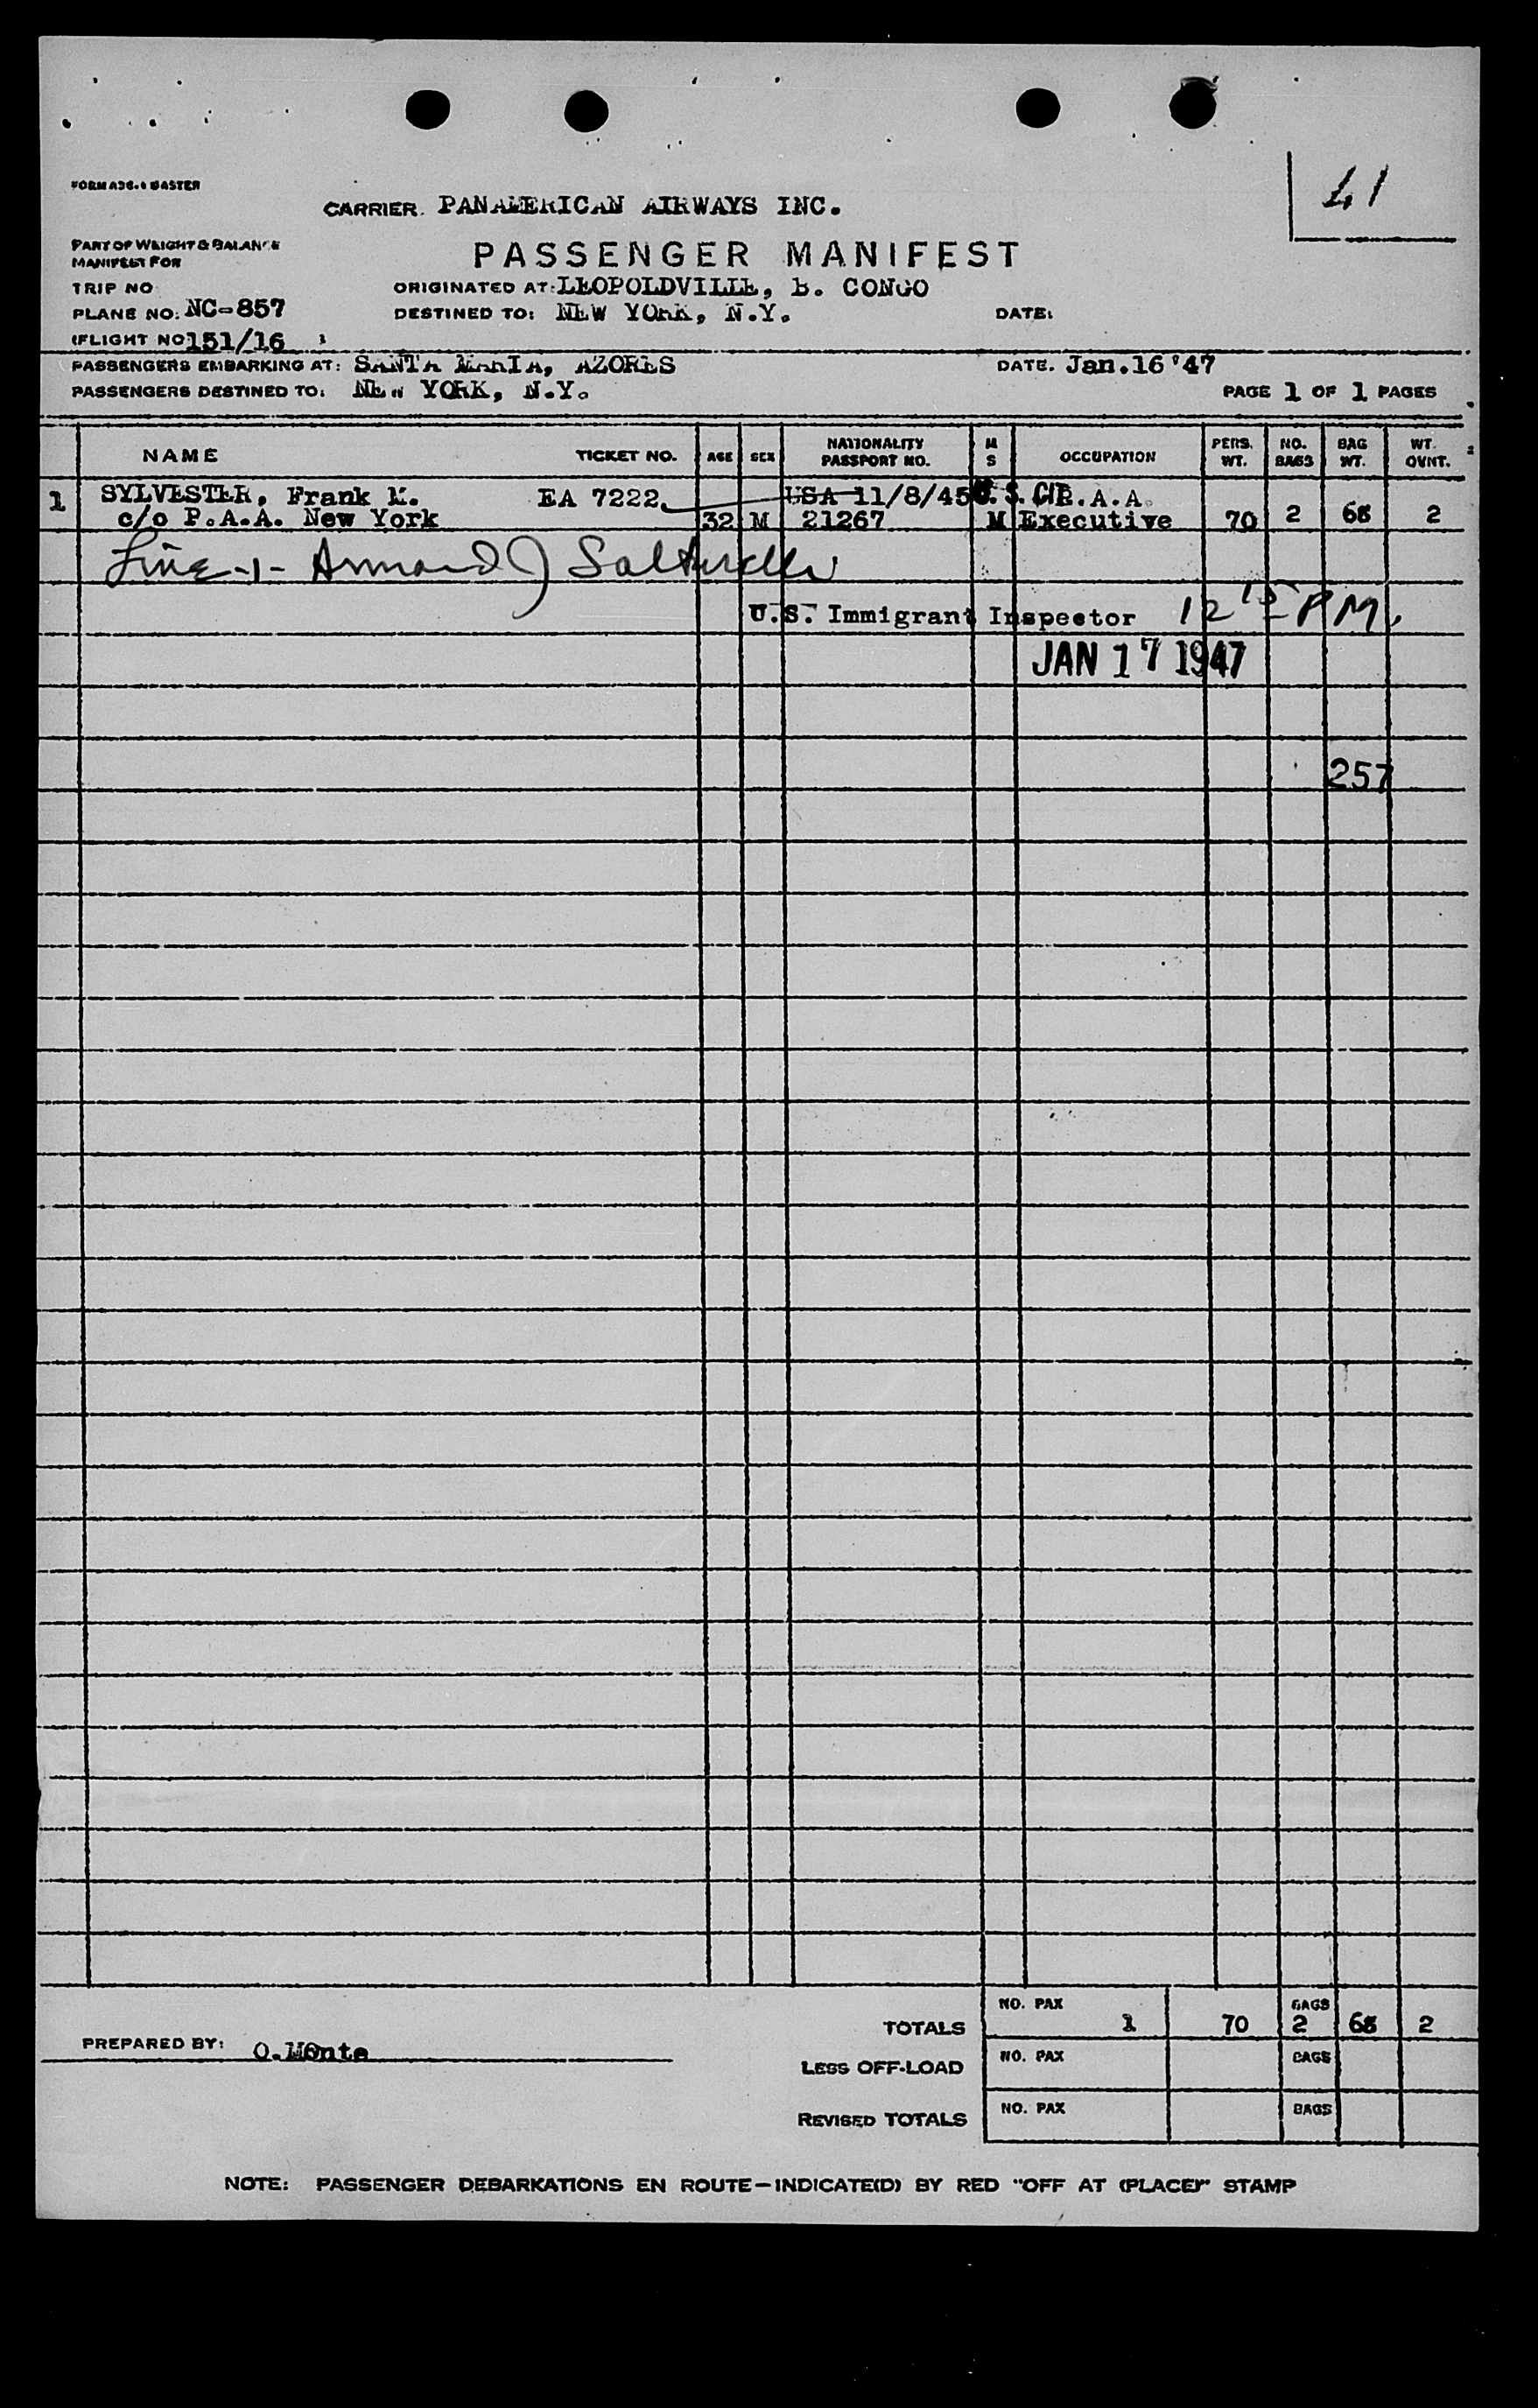 41
CARRIER. PANAMERICAN AIRWAYS INC.
PART OF WEIGHT & BALANCE
MANIFEST FOR
PASSENGER MANIFEST
TRIP NO
ORIGINATED AT: LEOPOLDVILLE, B. CONGO
PLANE NO: NC-857
DESTINED TO: NEW YORK, N.Y.
DATE:
(FLIGHT NO 151/16 )
PASSENGERS EMBARKING AT: SANTA MARIA, AZORES
DATE. Jan.16 '47
PASSENGERS DESTINED TO: NEW YORK, N.Y.
PAGE 1 OF 1 PAGES
NAME TICKET NO. AGE SEX NATIONALITY PASSPORT NO. M S OCCUPATION PERS. WT. NO. BAGS BAG WT. WT. OVNT.
1 SYLVESTER, Frank EA 7222 USA 11/8/45 U.S. CIT. P.A.A.
c/o P.A.A. New York 32 M 21267 M Executive 70 2 2
Line -1- Armand J
U.S. Immigrant Inspector 12 PM.
JAN 17 1947
257
TOTALS NO. PAX 1 70 BAGS 2 2
PREPARED BY: O.Monte
LESS OFF-LOAD NO. PAX BAGS
REVISED TOTALS NO. PAX BAGS
NOTE: PASSENGER DEBARKATIONS EN ROUTE—INDICATE(D) BY RED "OFF AT (PLACE)" STAMP